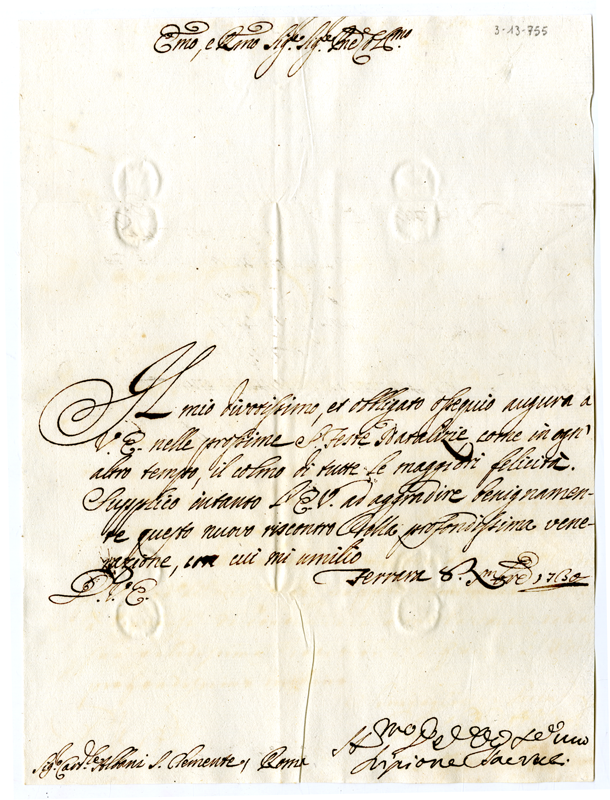 3-13-755
Emo, e Rmo Sig.re Sig.re Pne Colmo
Il mio divotissimo, et obbligato ossequio augura a
V. E. nelle prossime S. Feste Natalizie, come in ogn'
altro tempo, il colmo di tutte le maggiori felicità.
Supplico intanto l'E.V. ad aggradire benignamen-
te questo nuovo riscontro della profondissima vene-
razione, con cui mi umilio
D. V.ra E.
Ferrara 8. Xmbre
Sig.r Card.le Albani S. Clemente, Roma
Scipione